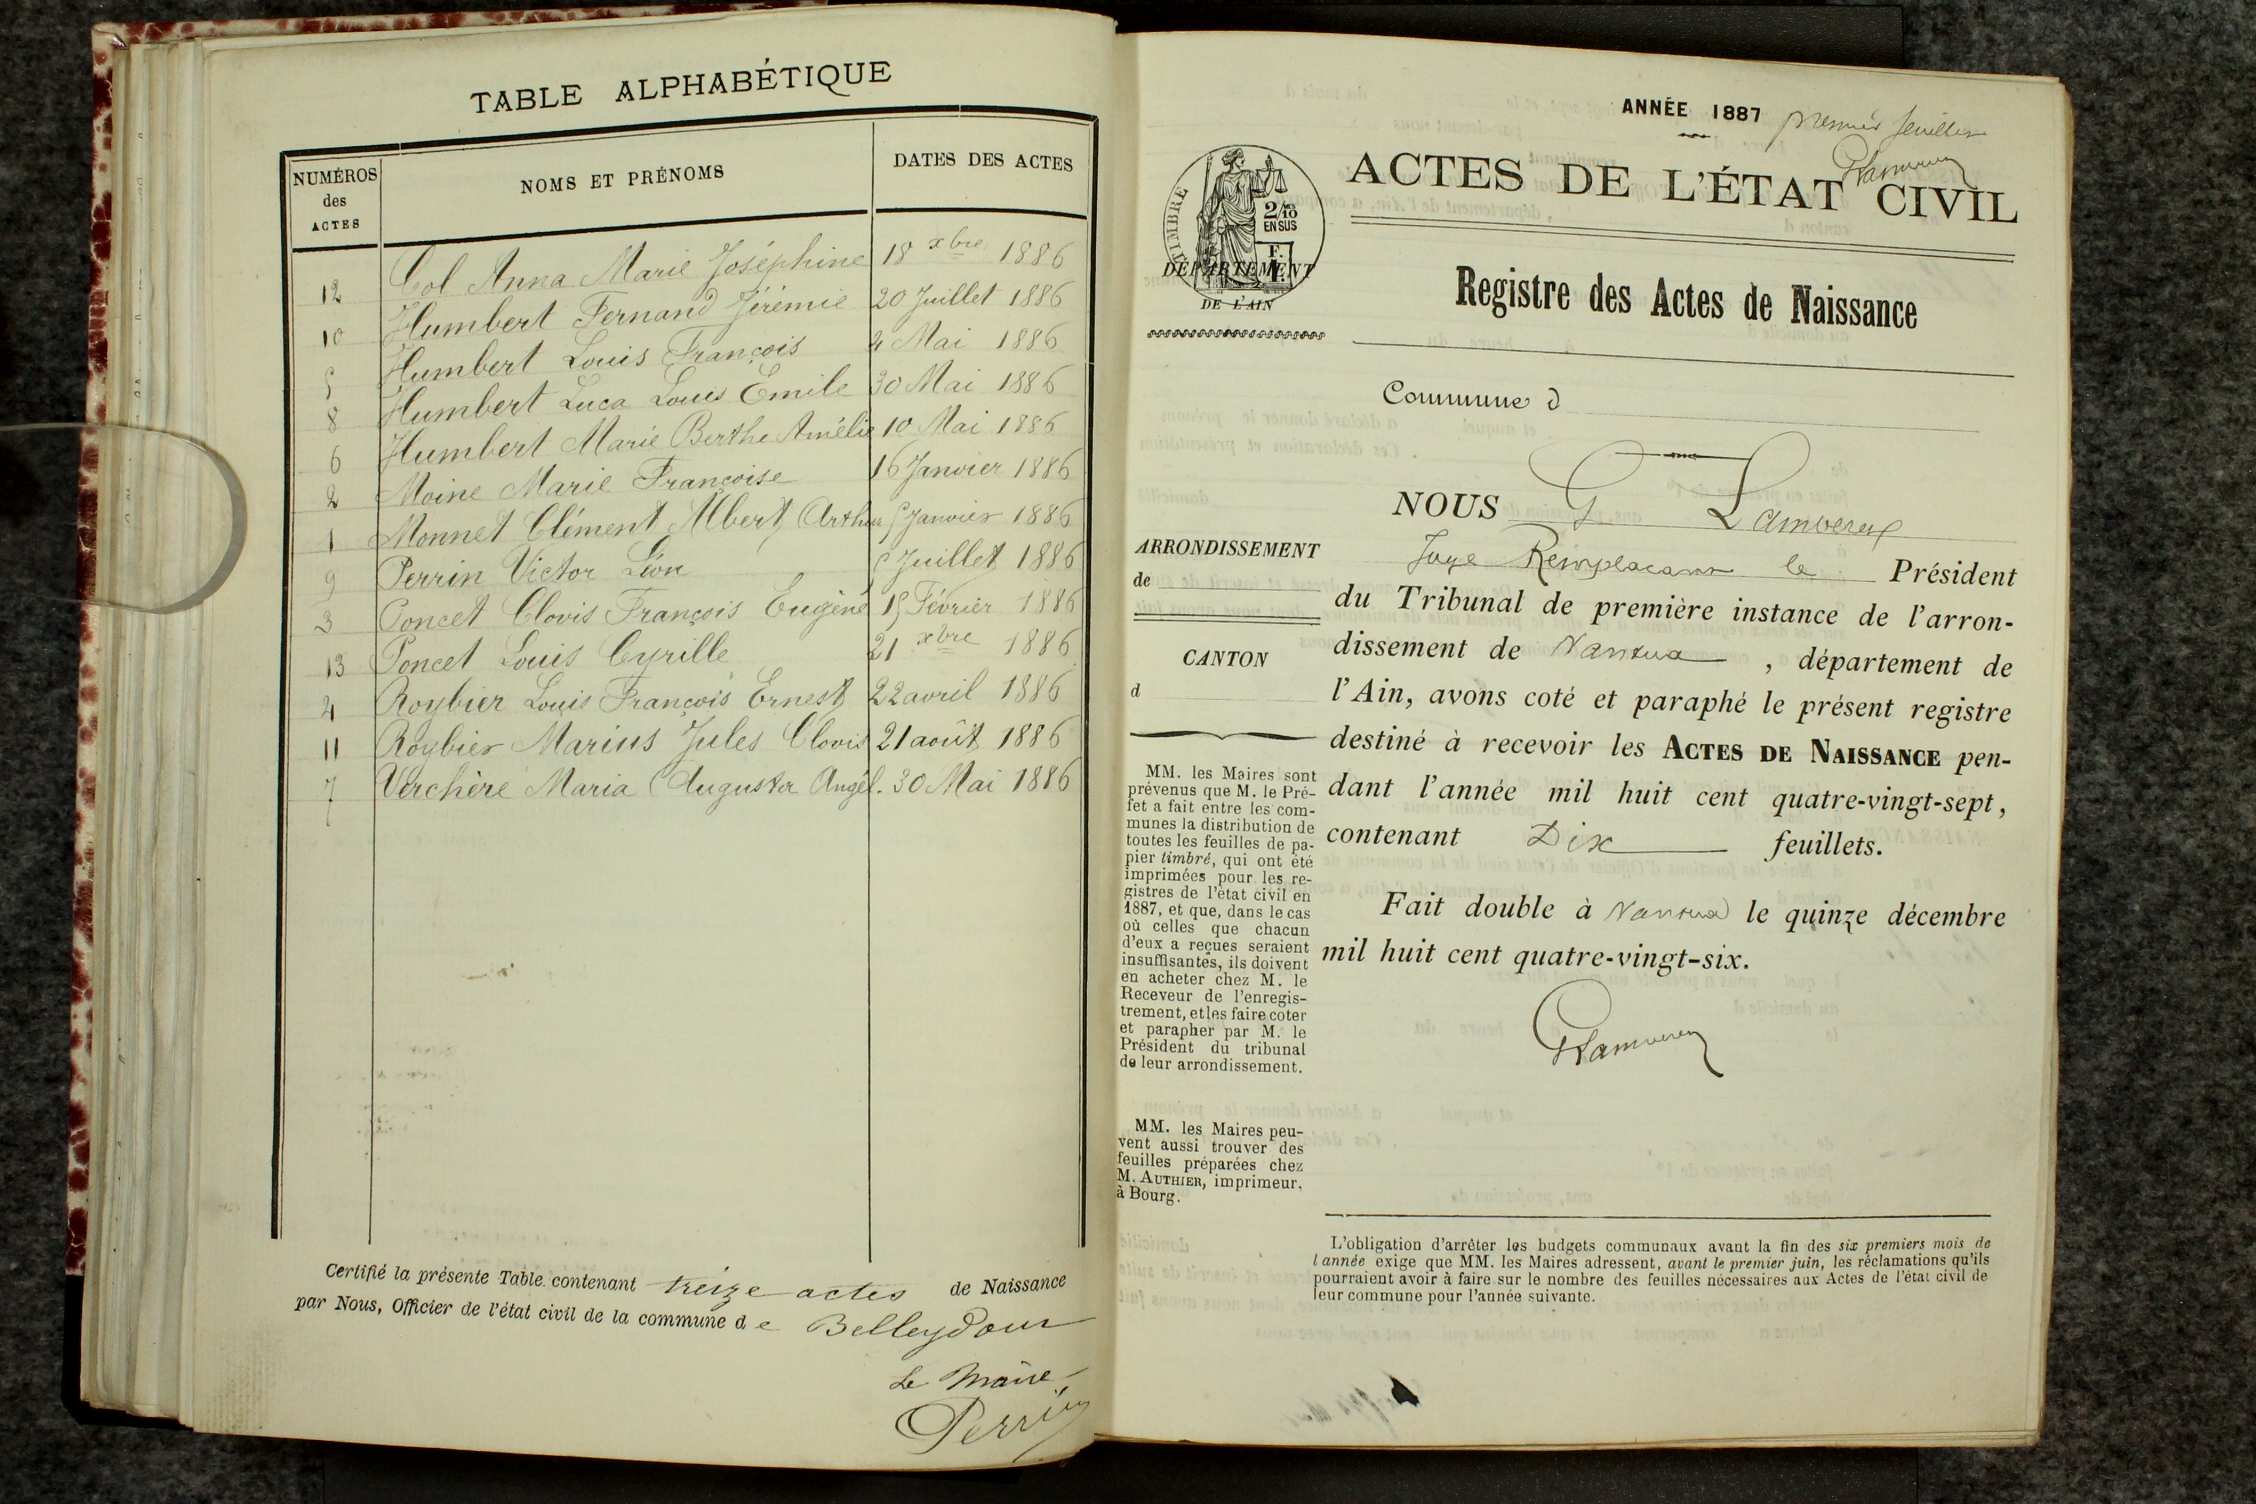 TABLE ALPHABÉTIQUE
NUMÉROS des ACTES NOMS ET PRÉNOMS DATES DES ACTES
12 Col Anna Marie Joséphine 18 xbre 1886
10 Humbert Fernand Jérémie 20 Juillet 1886
5 Humbert Louis François 4 Mai 1886
8 Humbert Luca Louis Emile 30 Mai 1886
6 Humbert Marie Berthe Amélie 10 Mai 1886
2 Moine Marie Françoise 16 Janvier 1886
1 Monnet Clément Albert Arthur 5 Janvier 1886
9 Perrin Victor Léon Juillet 1886
3 Poncet Clovis François Eugène 15 Février 1886
13 Poncet Louis Cyrille 21 xbre 1886
4 Roybier Louis François Ernest 22 avril 1886
11 Roybier Marius Jules Clovis 21 août 1886
7 Verchère Maria Augusta Angèl. 30 Mai 1886
Certifié la présente Table contenant treize actes de Naissance
par Nous, Officier de l'état civil de la commune de Belleydoux
Le Maire
Perrin
ANNÉE 1887 premier feuillet
ACTES DE L'ÉTAT CIVIL
TIMBRE
2/10 EN SUS
F.
1.
DÉPARTEMENT
DE L'AIN
Registre des Actes de Naissance
Commune d
NOUS G
Juge Remplaçant le Président
du Tribunal de première instance de l'arron-
dissement de Nantua, département de
l'Ain, avons coté et paraphé le présent registre
destiné à recevoir les ACTES DE NAISSANCE pen-
dant l'année mil huit cent quatre-vingt-sept,
contenant Dix feuillets.
Fait double à Nantua le quinze décembre
mil huit cent quatre-vingt-six.
ARRONDISSEMENT
de
CANTON
d
MM. les Maires sont
prévenus que M. le Pré-
fet a fait entre les com-
munes la distribution de
toutes les feuilles de pa-
pier timbré, qui ont été
imprimées pour les re-
gistres de l'état civil en
1887, et que, dans le cas
où celles que chacun
d'eux a reçues seraient
insuffisantes, ils doivent
en acheter chez M. le
Receveur de l'enregis-
trement, et les faire coter
et parapher par M. le
Président du tribunal
de leur arrondissement.
MM. les Maires peu-
vent aussi trouver des
feuilles préparées chez
M. AUTHIER, imprimeur,
à Bourg.
L'obligation d'arrêter les budgets communaux avant la fin des six premiers mois de
l'année exige que MM. les Maires adressent, avant le premier juin, les réclamations qu'ils
pourraient avoir à faire sur le nombre des feuilles nécessaires aux Actes de l'état civil de
leur commune pour l'année suivante.